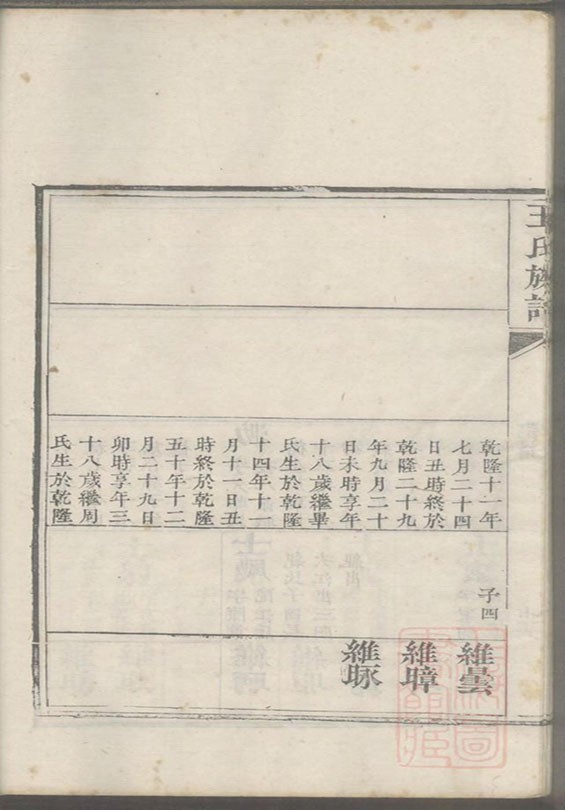 王氏族譜
乾隆十一年
七月二十四
日丑時終於
乾隆二十九
年九月二十
日未時享年
十八歲繼畢
氏生於乾隆
十四年十一
月十一日丑
時終於乾隆
五十年十二
月二十九日
卯時享年三
十八歲繼周
氏生於乾隆
子四
維曇
維璋
維琢